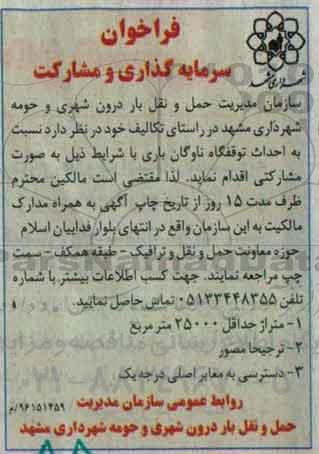 فراخوان
سرمایه گذاری و مشارکت
شهرداری مشهد
سازمان مدیریت حمل و نقل بار درون شهری و حومه
شهرداری مشهد در راستای تکالیف خود در نظر دارد نسبت
به احداث توقفگاه ناوگان باری با شرایط ذیل به صورت
مشارکتی اقدام نماید. لذا مقتضی است مالکین محترم
ظرف مدت ۱۵ روز از تاریخ چاپ آگهی به همراه مدارک
مالکیت به این سازمان واقع در انتهای بلوار فداییان اسلام
حوزه معاونت حمل و نقل و ترافیک - طبقه همکف - سمت
چپ مراجعه نمایند. جهت کسب اطلاعات بیشتر با شماره
تلفن ۰۵۱۳۳۴۴۸۳۵۵ تماس حاصل نمایید.
۱- متراژ حداقل ۲۵۰۰۰ متر مربع
۲- ترجیحا مصور
۳- دسترسی به معابر اصلی درجه یک
روابط عمومی سازمان مدیریت
حمل و نقل بار درون شهری و حومه شهرداری مشهد
۹۶۱۵۱۳۵۹/م